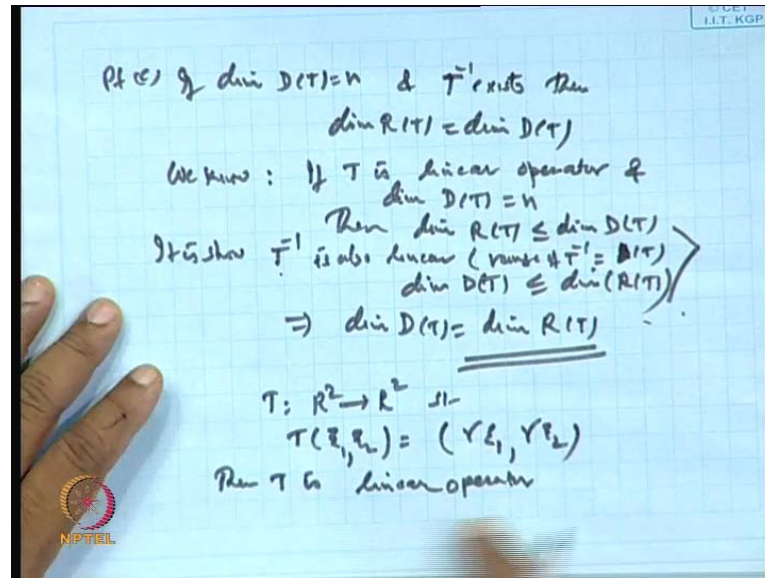 © CET
I.I.T. KGP
Pf (c) If dim D(T)=n & T⁻¹ exists then
dim R(T) = dim D(T)
We know : If T is linear operator &
dim D(T) = n
Then dim R(T) ≤ dim D(T)
It is show T⁻¹ is also linear (range of T⁻¹ = D(T)
dim D(T) ≤ dim (R(T))
⇒ dim D(T) = dim R(T)
T: R² → R² st-
T(ξ₁, ξ₂) = (γξ₁, γξ₂)
Then T is linear operator
NPTEL